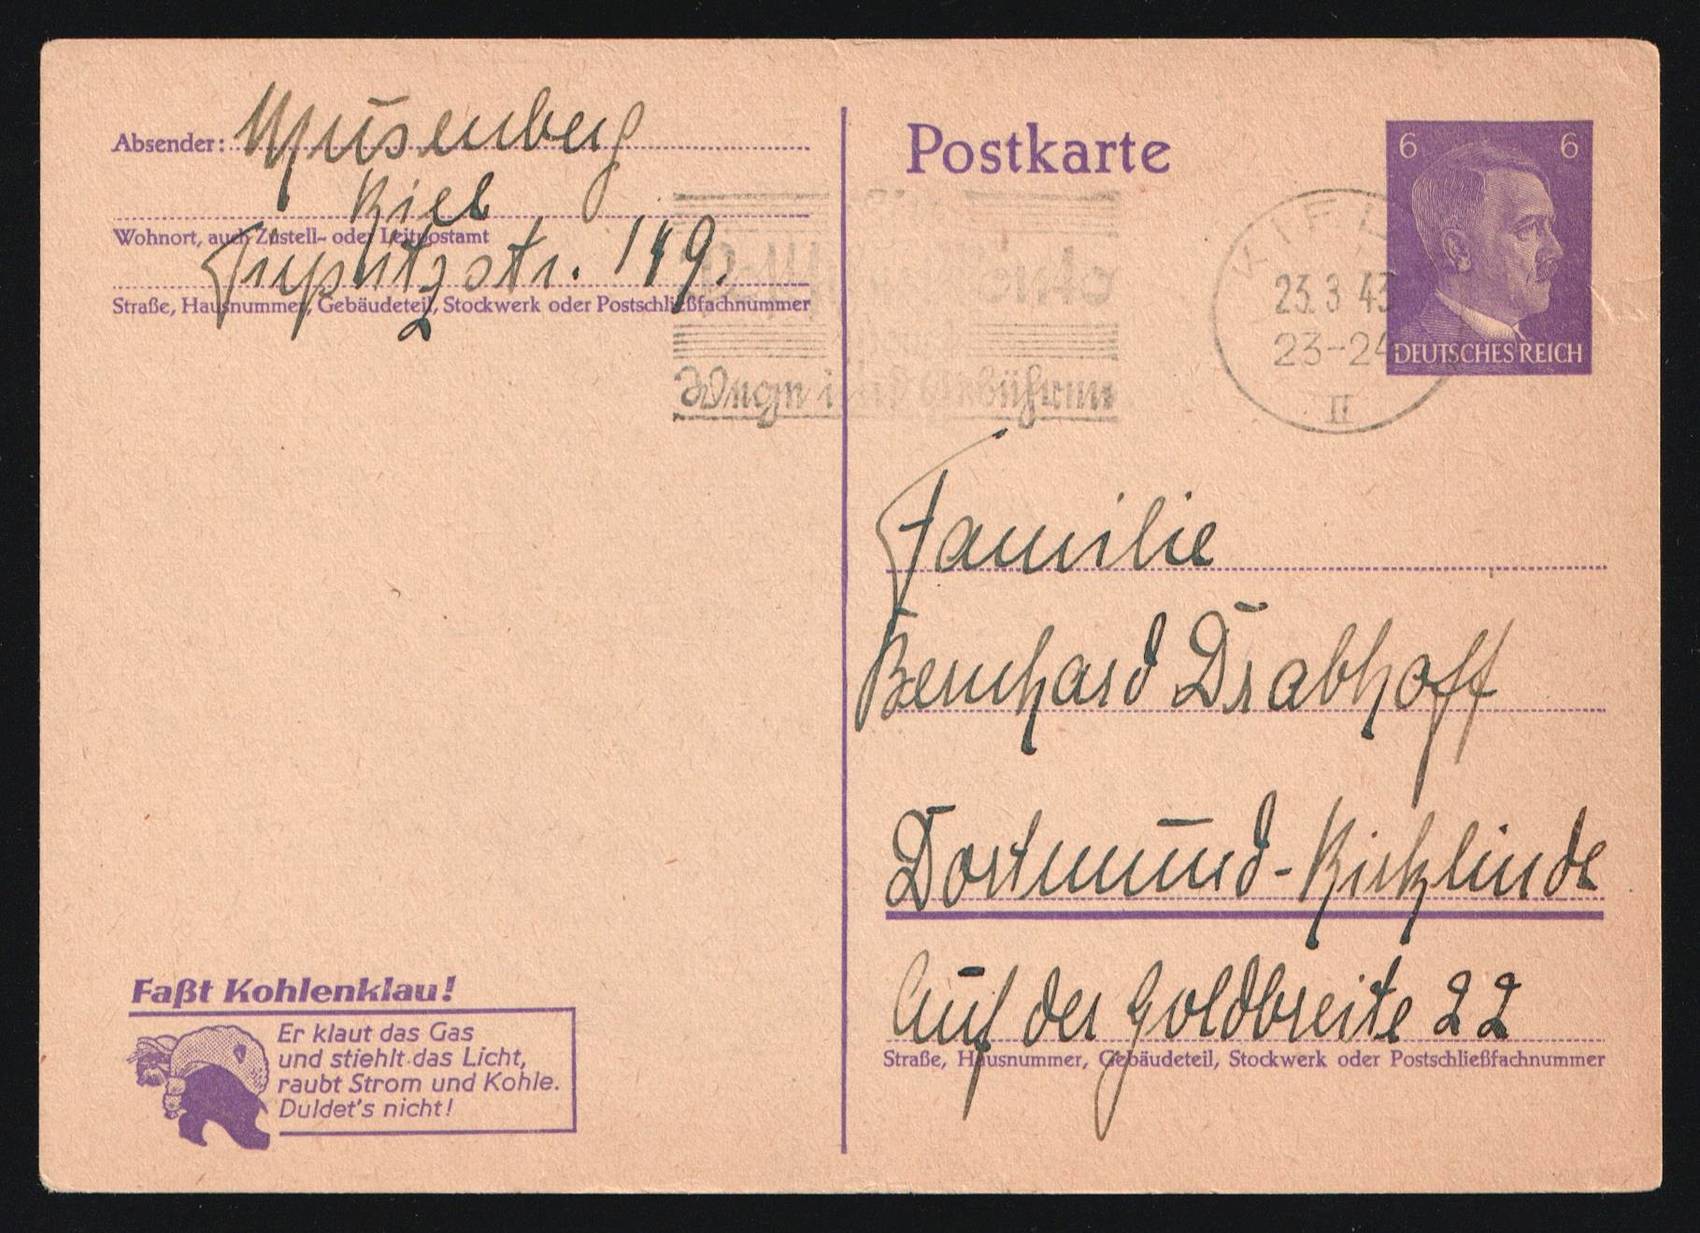 Absender: Musenberg
Kiel
Wohnort, auch Zustell- oder Leitpostamt
Tirpitzstr. 149.
Straße, Hausnummer, Gebäudeteil, Stockwerk oder Postschließfachnummer
Postkarte
6 6
DEUTSCHES REICH
KIEL
23.3.43
23-24
II
Konto
Wege und Gebühren
Familie
Bernhard Drabhoff
Dortmund-Kirchlinde
Auf der Goldbreite 22
Straße, Hausnummer, Gebäudeteil, Stockwerk oder Postschließfachnummer
Faßt Kohlenklau!
Er klaut das Gas
und stiehlt das Licht,
raubt Strom und Kohle.
Duldet's nicht!